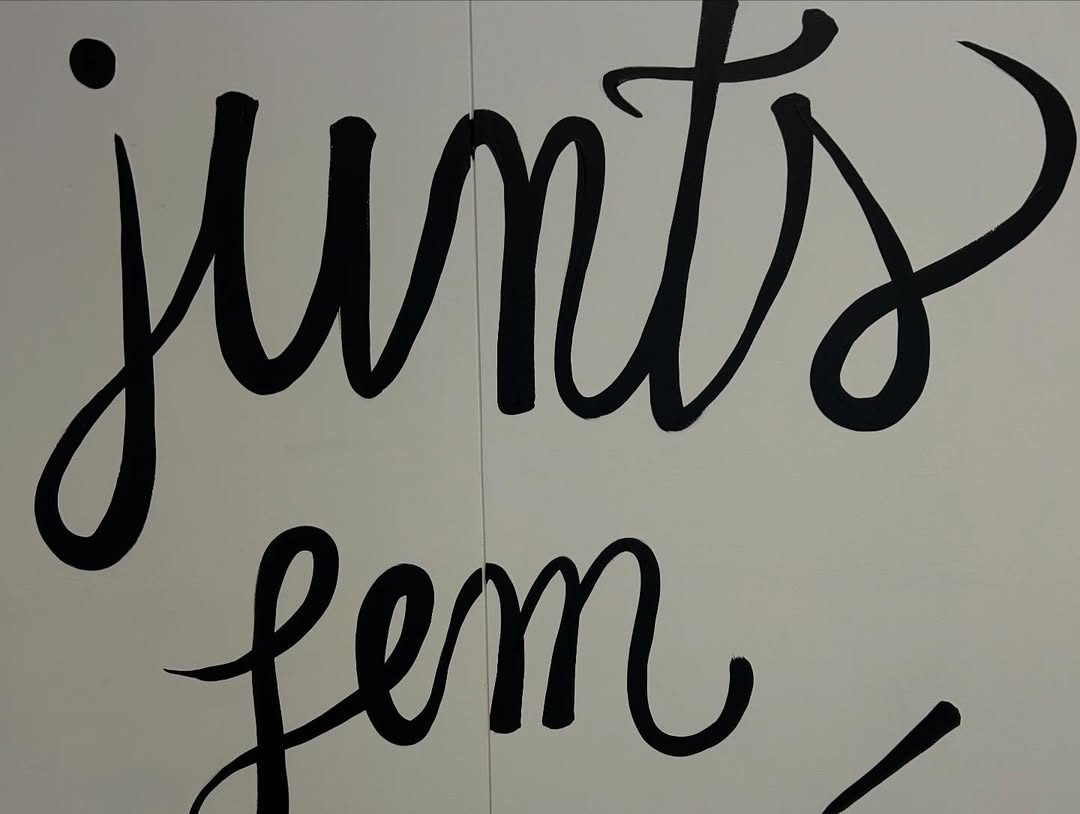 junts
fem